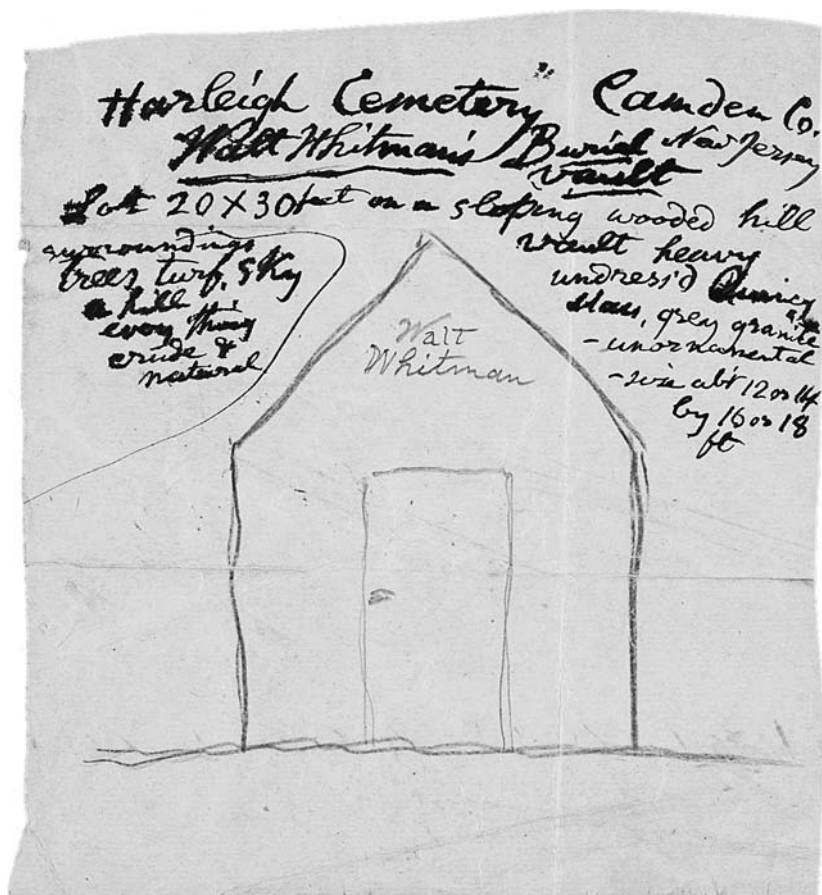 Harleigh Cemetery Camden Co.
New Jersey
Walt Whitman's Burial
Vault
Lot 20 X 30 feet on a sloping wooded hill
surroundings
trees turf, sky
a hill
every thing
crude &
natural
vault heavy
undress'd Quincy
grey granite
- unornamental
- size abt 12 or 14
by 16 or 18
ft
Walt
Whitman